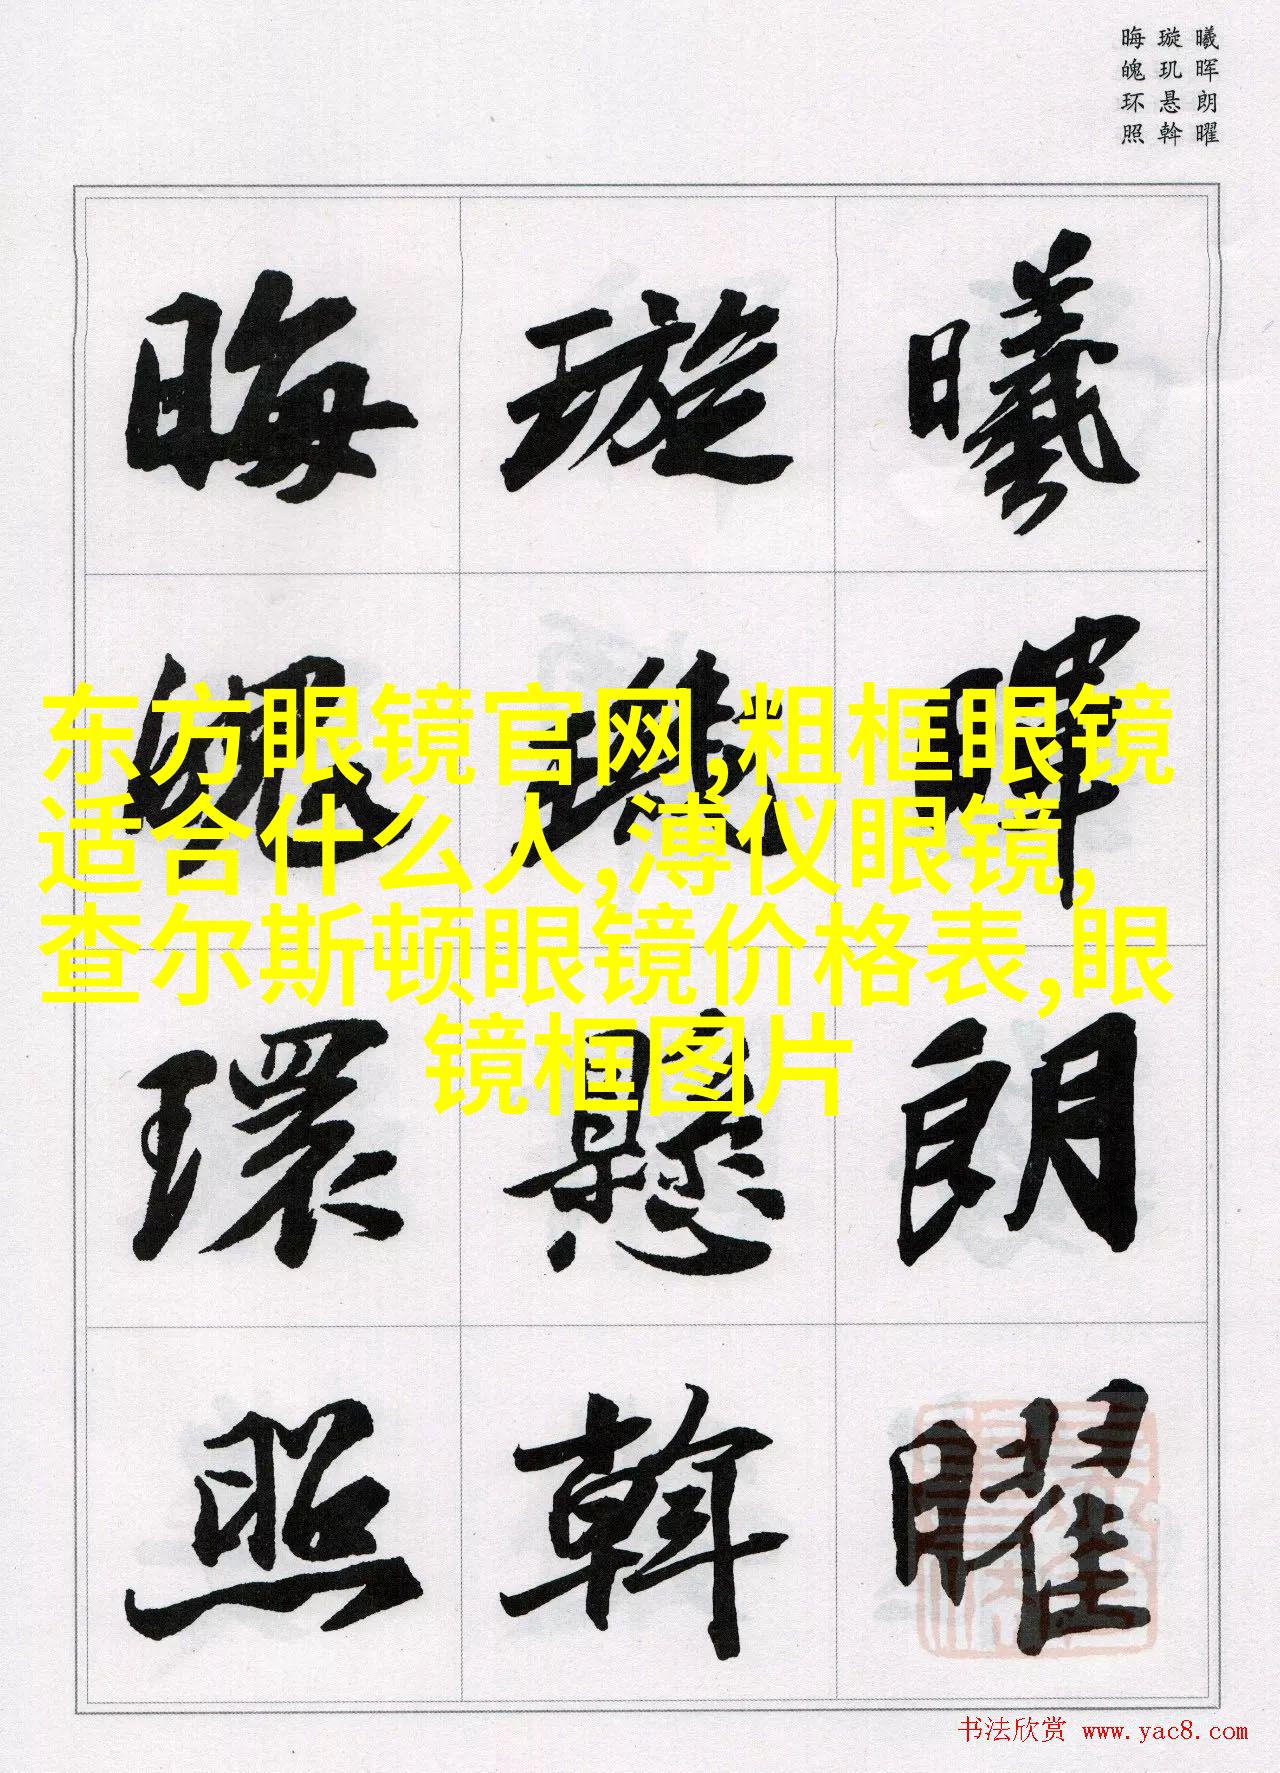 曦晖朗曜
璇玑悬斡
晦魄环照
曦暉朗曜
璇璣懸斡
晦魄環照
东方眼镜官网,粗框眼镜
适合什么人,溥仪眼镜,
查尔斯顿眼镜价格表,眼
镜框图片
书法欣赏 www.yac8.com